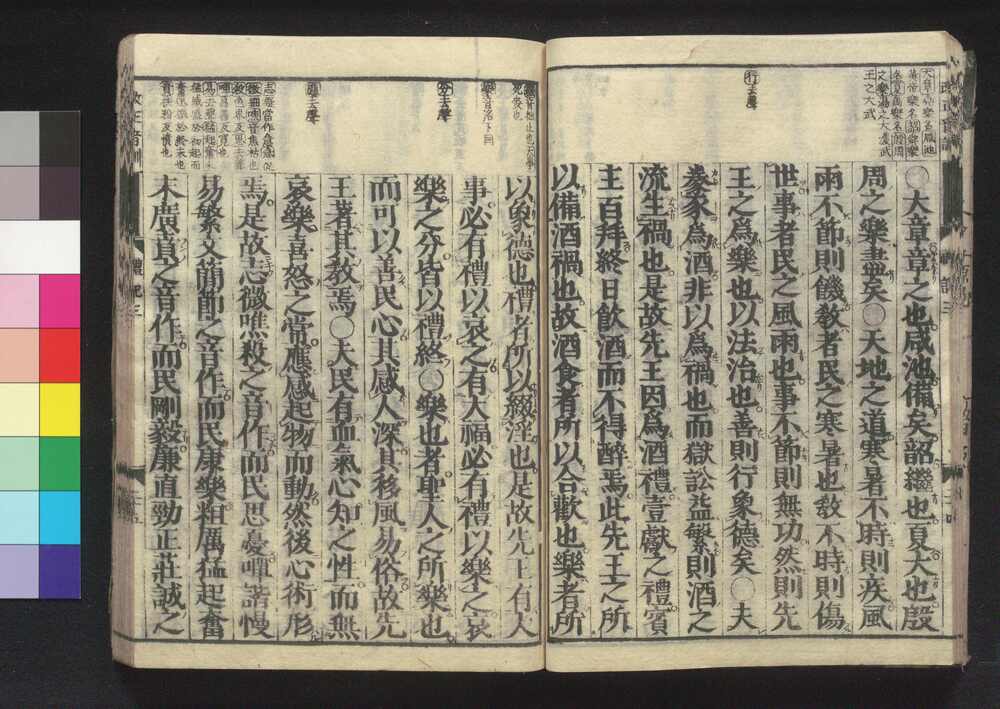 大章章之也咸池備矣韶繼也夏大也殷
周之樂盡矣天地之道寒暑不時則疾風
雨不節則饑敎者民之寒暑也敎不時則傷
世事者民之風雨也事不節則無功然則先
王之爲樂也以法治也善則行象德矣夫
豢豕爲酒非以爲禍也而獄訟益繁則酒之
流生禍也是故先王因爲酒禮壹獻之禮賓
主百拜終日飮酒而不得醉焉此先王之所
以備酒禍也故酒食者所以合歡也樂者所
以象德也禮者所以綴淫也是故先王有大
事必有禮以哀之有大福必有禮以樂之哀
樂之分皆以禮終樂也者聖人之所樂也
而可以善民心其感人深其移風易俗故先
王著其敎焉夫民有血氣心知之性而無
哀樂喜怒之常應感起物而動然後心術形
焉是故志微噍殺之音作而民思憂嘽諧慢
易繁文簡節之音作而民康樂粗厲猛起奮
末廣賁之音作而民剛毅廉直勁正莊誠之
行去聲
分去聲
禮記三